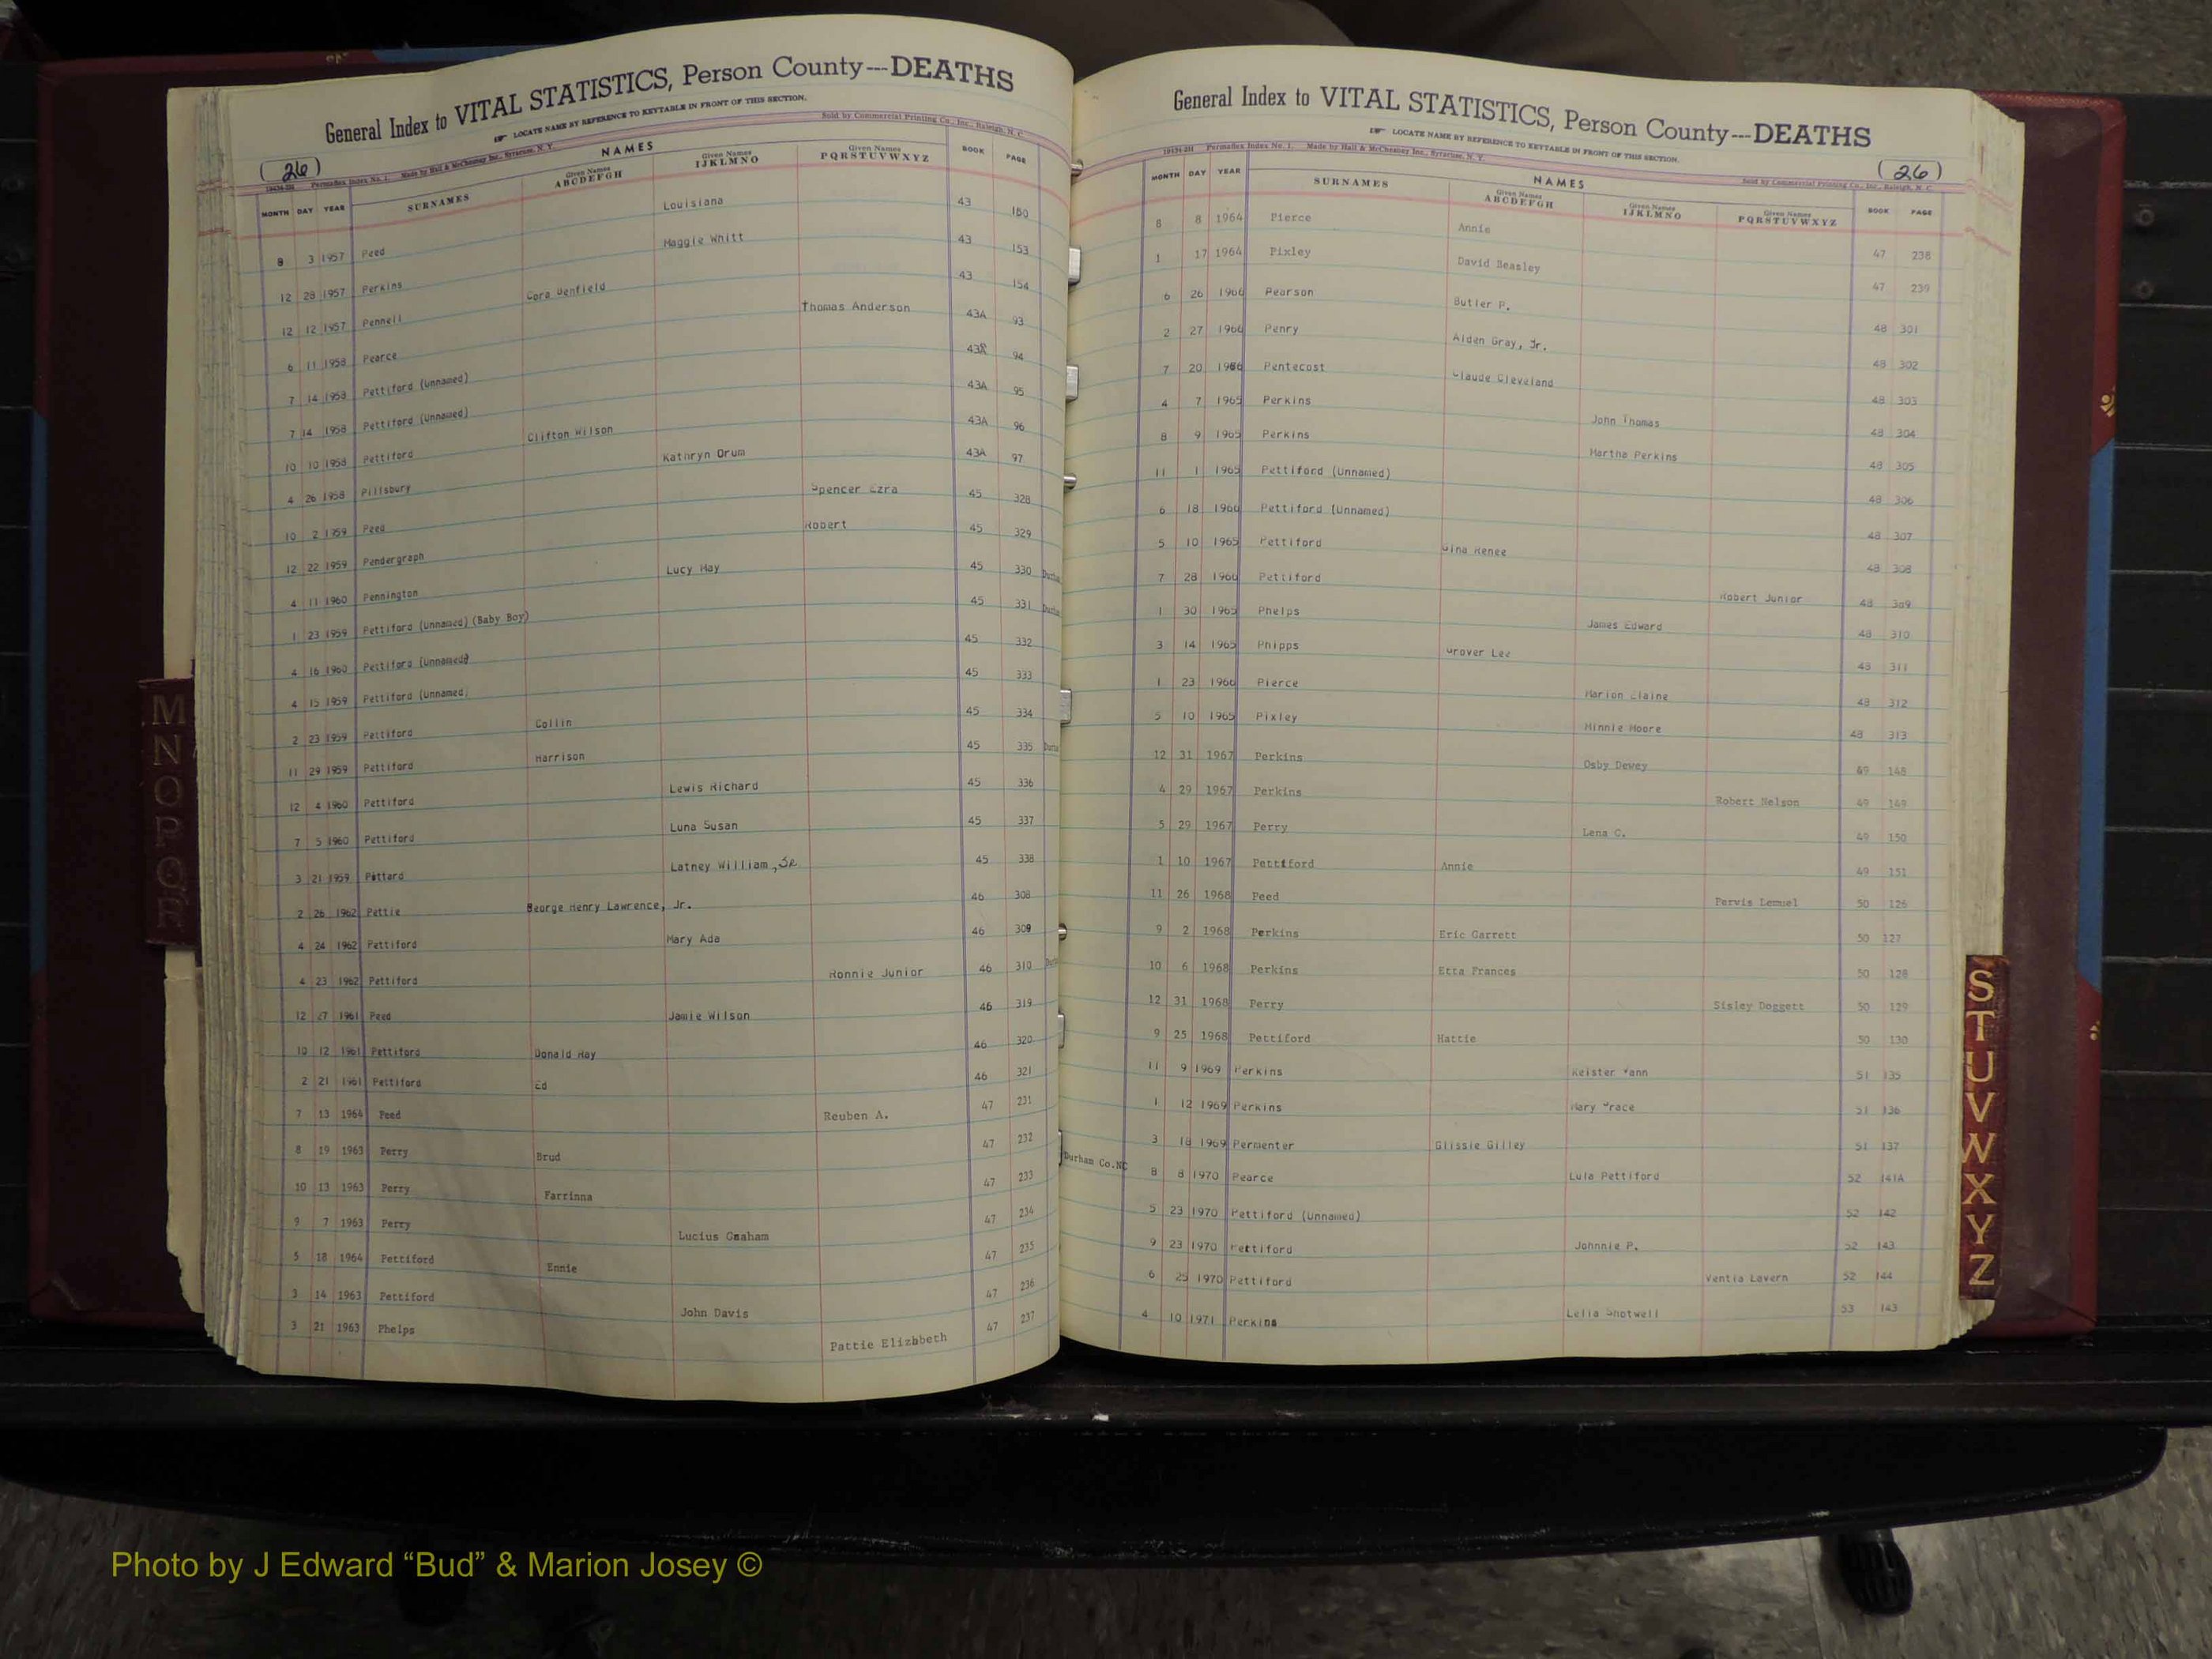 General Index to VITAL STATISTICS, Person County---DEATHS
LOCATE NAME BY REFERENCE TO KEYTABLE IN FRONT OF THIS SECTION.
(26)
Permaflex Index No. 1. Made by Hall & McChesney Inc., Syracuse, N. Y. Sold by Commercial Printing Co., Inc., Raleigh, N. C.
NAMES
MONTH DAY YEAR SURNAMES Given Names ABCDEFGH Given Names IJKLMNO Given Names PQRSTUVWXYZ BOOK PAGE
8 3 1957 Peed Louisiana 43 150
12 28 1957 Perkins Maggie Whitt 43 153
12 12 1957 Pennell Cora Denfield 43 154
6 11 1958 Pearce Thomas Anderson 43A 93
7 14 1958 Pettiford (Unnamed) 43A 94
7 14 1958 Pettiford (Unnamed) 43A 95
10 10 1958 Pettiford Clifton Wilson 43A 96
4 26 1958 Pillsbury Kathryn Orum 43A 97
10 2 1959 Peed Spencer Ezra 45 328
12 22 1959 Pendergraph Robert 45 329
4 11 1960 Pennington Lucy May 45 330
1 23 1959 Pettiford (Unnamed) (Baby Boy) 45 331
4 16 1960 Pettiford (Unnamed) 45 332
4 15 1959 Pettiford (Unnamed) 45 333
2 23 1959 Pettiford Collin 45 334
11 29 1959 Pettiford Harrison 45 335
12 4 1960 Pettiford Lewis Richard 45 336
7 5 1960 Pettiford Luna Susan 45 337
3 21 1959 Pittard Latney William, Sr. 45 338
2 26 1962 Pettie George Henry Lawrence, Jr. 46 308
4 24 1962 Pettiford Mary Ada 46 309
4 23 1962 Pettiford Ronnie Junior 46 310
12 27 1961 Peed Jamie Wilson 46 319
10 12 1961 Pettiford Donald Ray 46 320
2 21 1961 Pettiford Ed 46 321
7 13 1964 Peed Reuben A. 47 231
8 19 1963 Perry Brud 47 232
10 13 1963 Perry Farrinna 47 233
9 7 1963 Perry Lucius Graham 47 234
5 18 1964 Pettiford Ennie 47 235
3 14 1963 Pettiford John Davis 47 236
3 21 1963 Phelps Pattie Elizbbeth 47 237
General Index to VITAL STATISTICS, Person County---DEATHS
LOCATE NAME BY REFERENCE TO KEYTABLE IN FRONT OF THIS SECTION.
(26)
Permaflex Index No. 1. Made by Hall & McChesney Inc., Syracuse, N. Y. Sold by Commercial Printing Co., Inc., Raleigh, N. C.
NAMES
MONTH DAY YEAR SURNAMES Given Names ABCDEFGH Given Names IJKLMNO Given Names PQRSTUVWXYZ BOOK PAGE
8 8 1964 Pierce Annie 47 238
1 17 1964 Pixley David Beasley 47 239
6 26 1966 Pearson Butler P. 48 301
2 27 1966 Penry Alden Gray, Jr. 48 302
7 20 1966 Pentecost Claude Cleveland 48 303
4 7 1965 Perkins John Thomas 48 304
8 9 1965 Perkins Martha Perkins 48 305
11 1 1965 Pettiford (Unnamed) 48 306
6 18 1966 Pettiford (Unnamed) 48 307
5 10 1965 Pettiford Gina Renee 48 308
7 28 1966 Pettiford Robert Junior 48 309
1 30 1965 Phelps James Edward 48 310
3 14 1965 Phipps Grover Lee 48 311
1 23 1966 Pierce Marion Elaine 48 312
5 10 1965 Pixley Minnie Moore 48 313
12 31 1967 Perkins Osby Dewey 69 148
4 29 1967 Perkins Robert Nelson 49 149
5 29 1967 Perry Lena C. 49 150
1 10 1967 Pettiford Annie 49 151
11 26 1968 Peed Pervis Lemuel 50 126
9 2 1968 Perkins Eric Garrett 50 127
10 6 1968 Perkins Etta Frances 50 128
12 31 1968 Perry Sisley Doggett 50 129
9 25 1968 Pettiford Hattie 50 130
11 9 1969 Perkins Keister Vann 51 135
1 12 1969 Perkins Mary Grace 51 136
3 18 1969 Permenter Glissie Gilley 51 137
Durham Co. NC 8 8 1970 Pearce Lula Pettiford 52 141A
5 23 1970 Pettiford (Unnamed) 52 142
9 23 1970 Pettiford Johnnie P. 52 143
6 25 1970 Pettiford Ventia Lavern 52 144
4 10 1971 Perkins Lelia Shotwell 53 143
M
N
O
P
Q
R
S
T
U
V
W
X
Y
Z
Photo by J Edward “Bud” & Marion Josey ©